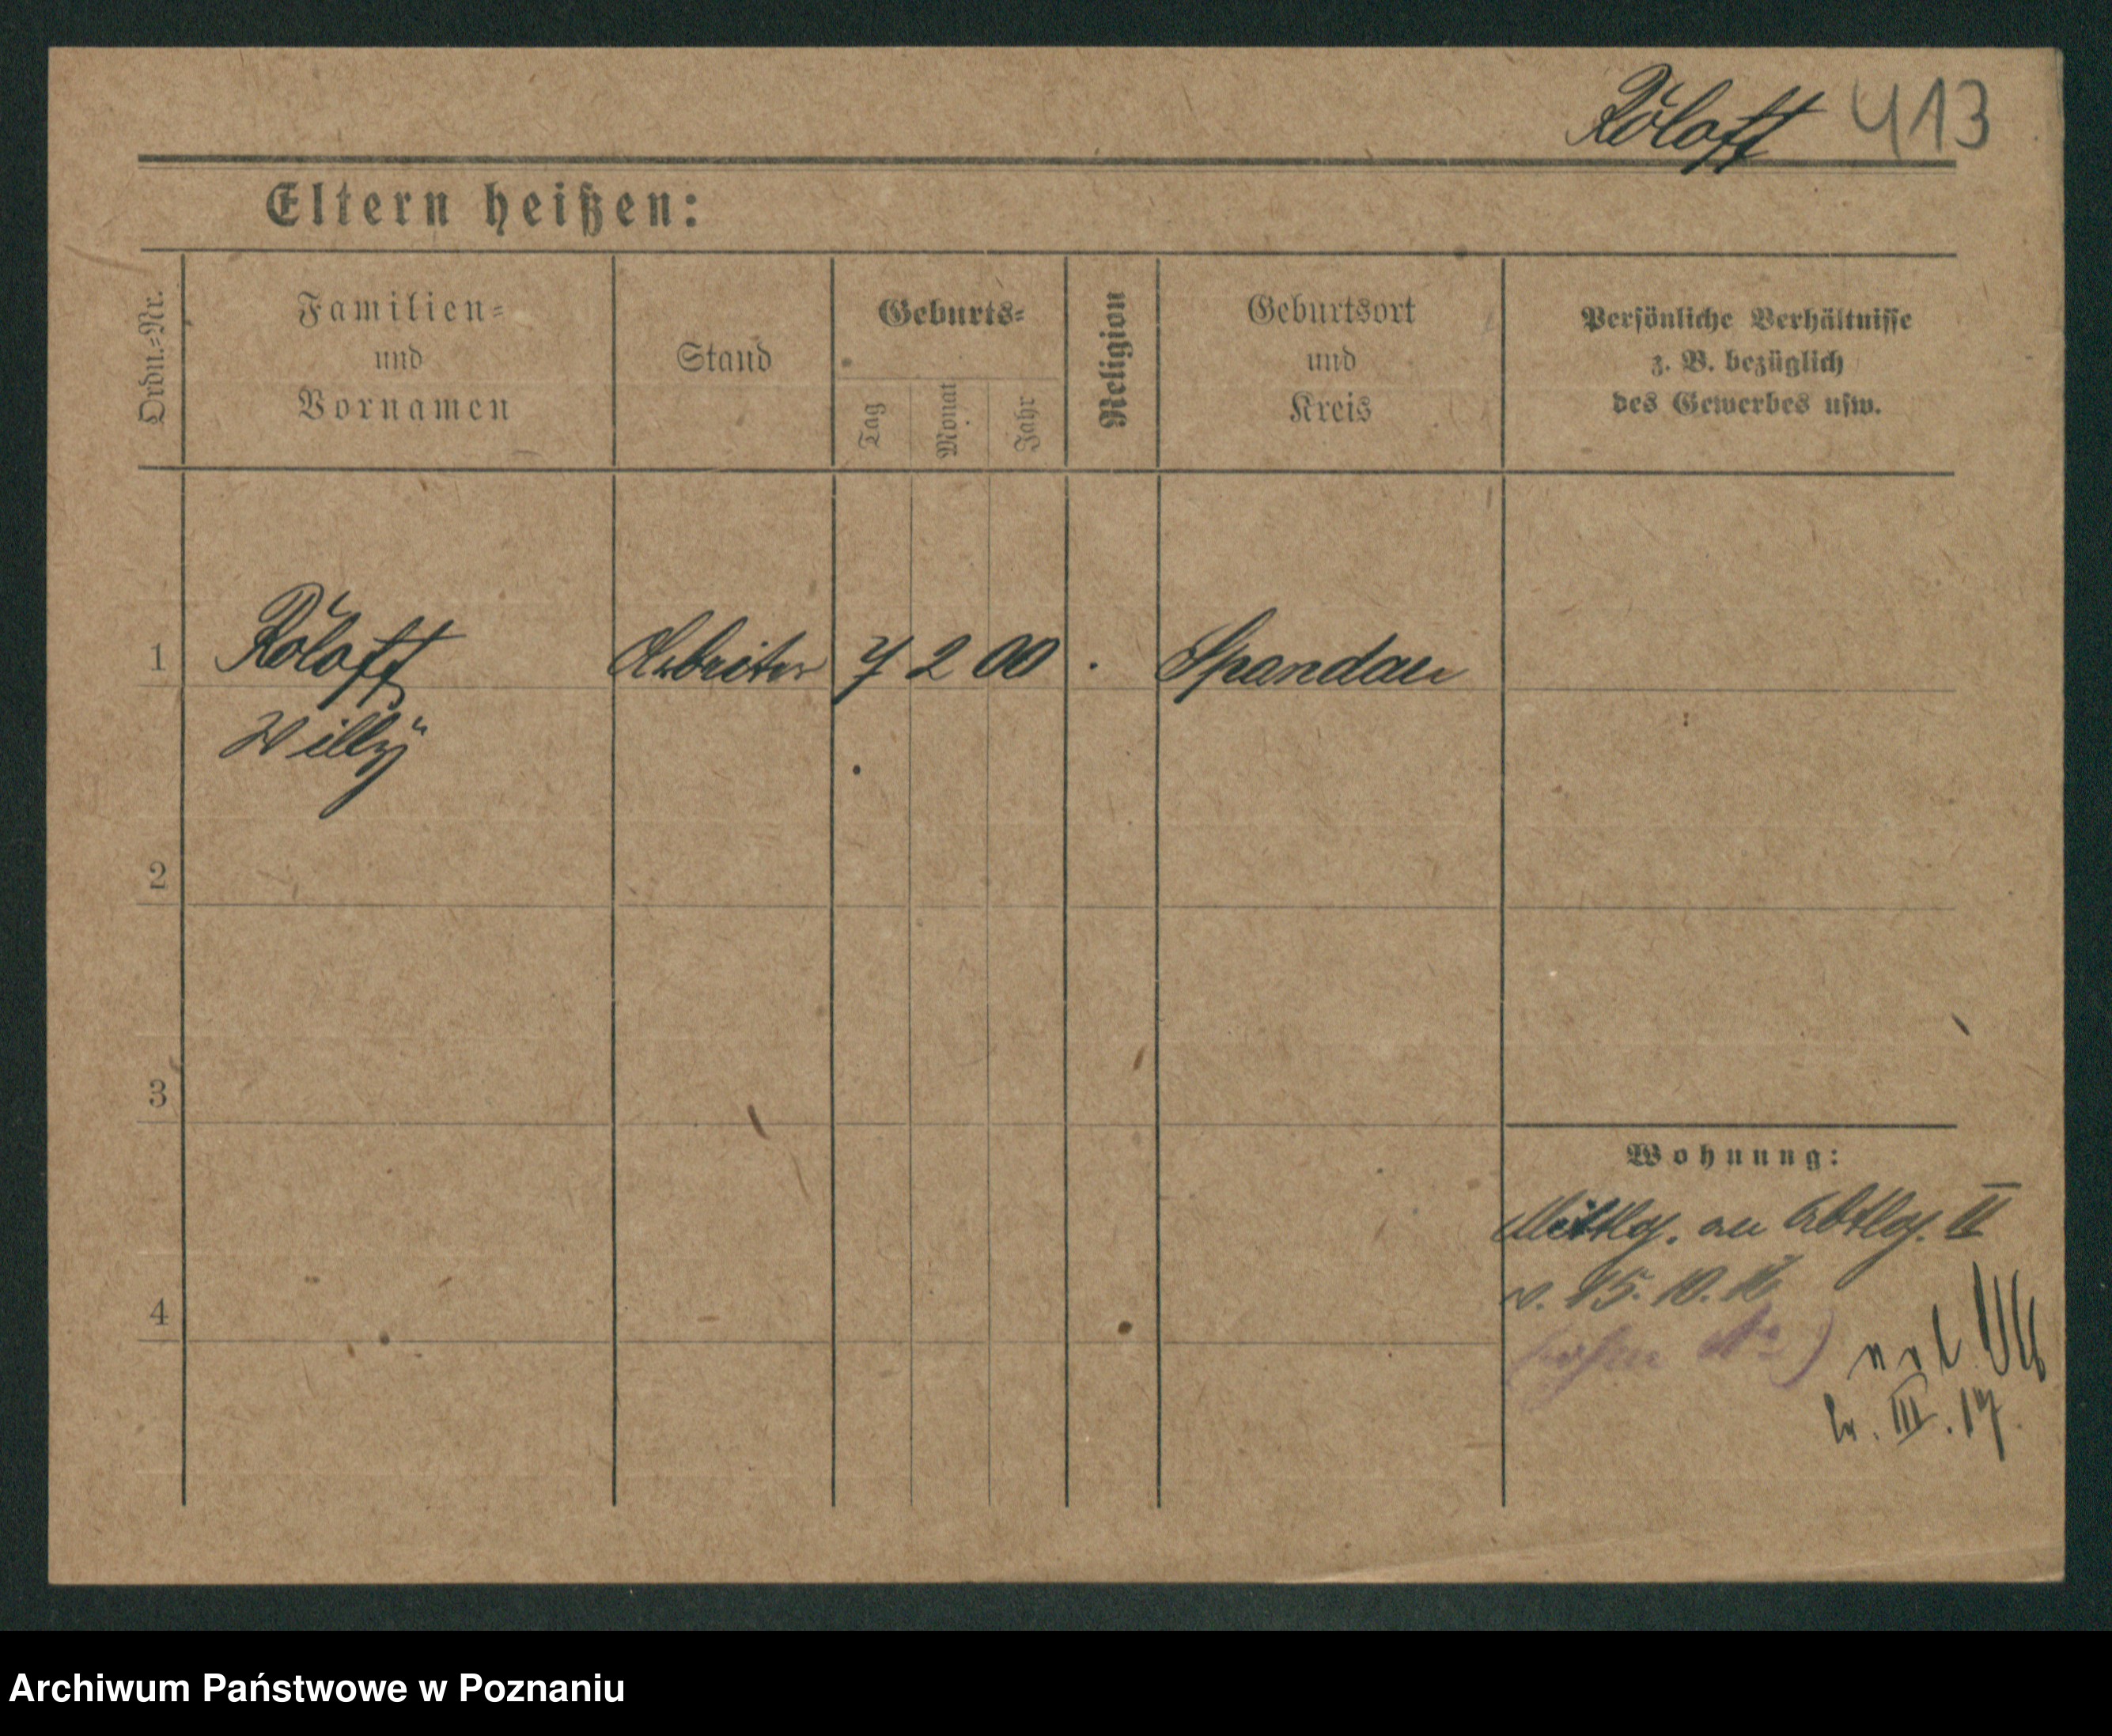 Röloff 413
Eltern heißen:
Ordn.=Nr.
Familien=
und
Vornamen
Stand
Geburts=
Tag
Monat
Jahr
Religion
Geburtsort
und
Kreis
Persönliche Verhältnisse
z. B. bezüglich
des Gewerbes usw.
1 Röloff Arbeiter 7 2 00 Spandau
Willÿ
2
3
4
Wohnung:
Mittlg. an Abtlg. II
v. 15. 10.
III. 17.
Archiwum Państwowe w Poznaniu